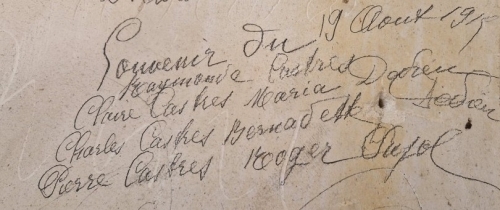 Souvenir du 19 Aout 19
Raymonde Castres
Claire Castres Maria
Charles Castres Bernadette
Pierre Castres Roger Pujol